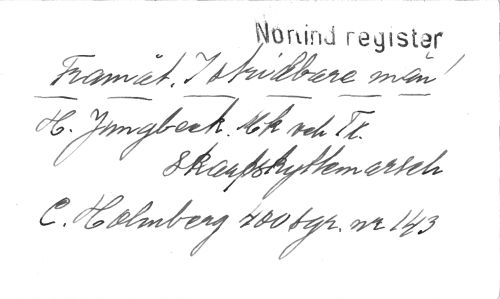 Norlind register
Framåt. I stridbare män!
H. Jungbeck. Mk och Tx.
Skarpskyttemarsch
C. Holmberg 200 sgr. nr 143